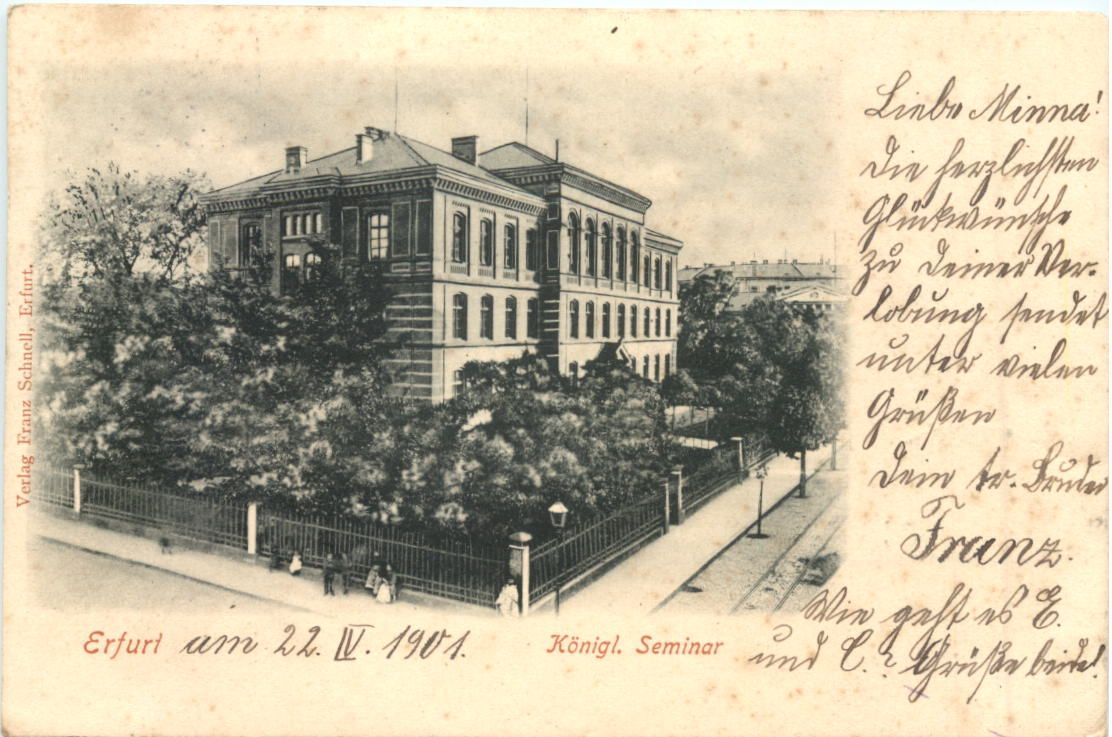 Liebe Minna!
Die herzlichsten
Glückwünsche
zu Deiner Ver-
lobung sendet
unter vielen
Grüßen
Dein tr. Bruder
Franz.
Wie geht es E.
und C.? Grüße beide!
Erfurt am 22. IV. 1901.
Königl. Seminar
Verlag Franz Schnell, Erfurt.